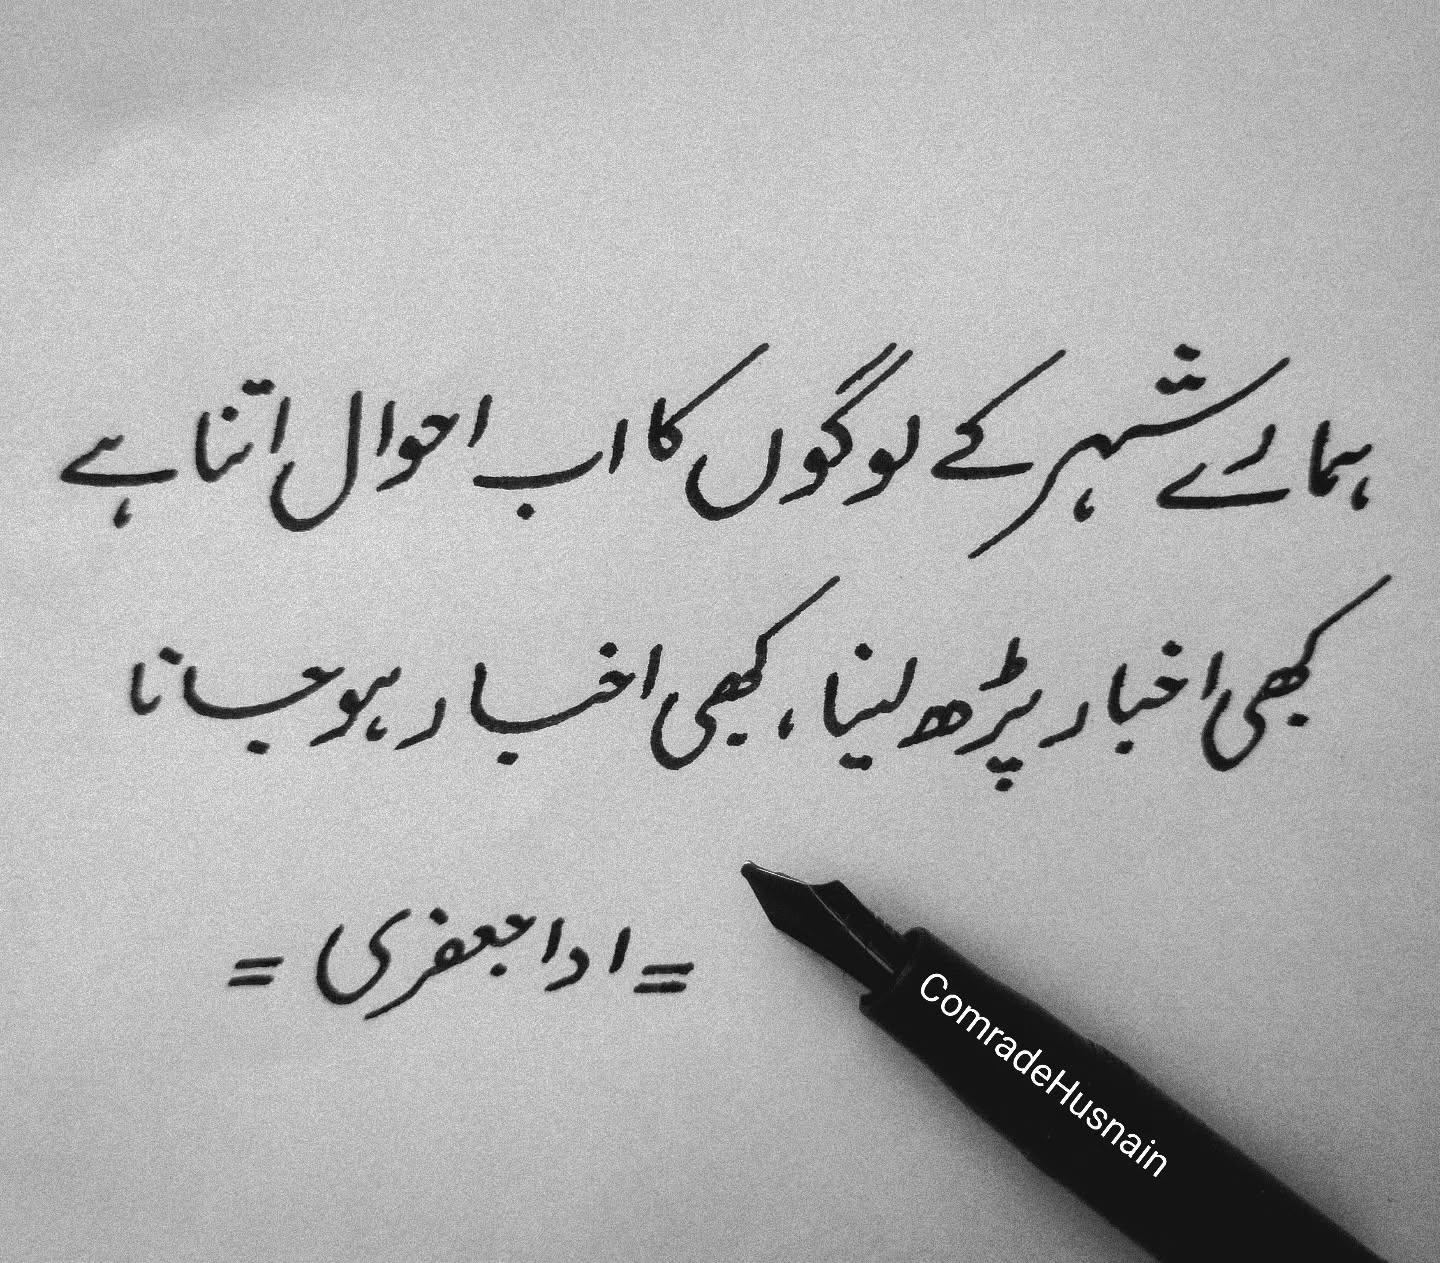 ہمارے شہر کے لوگوں کا اب احوال اتنا ہے
کبھی اخبار پڑھ لینا، کبھی اخبار ہو جانا
= ادا جعفری =
ComradeHusnain